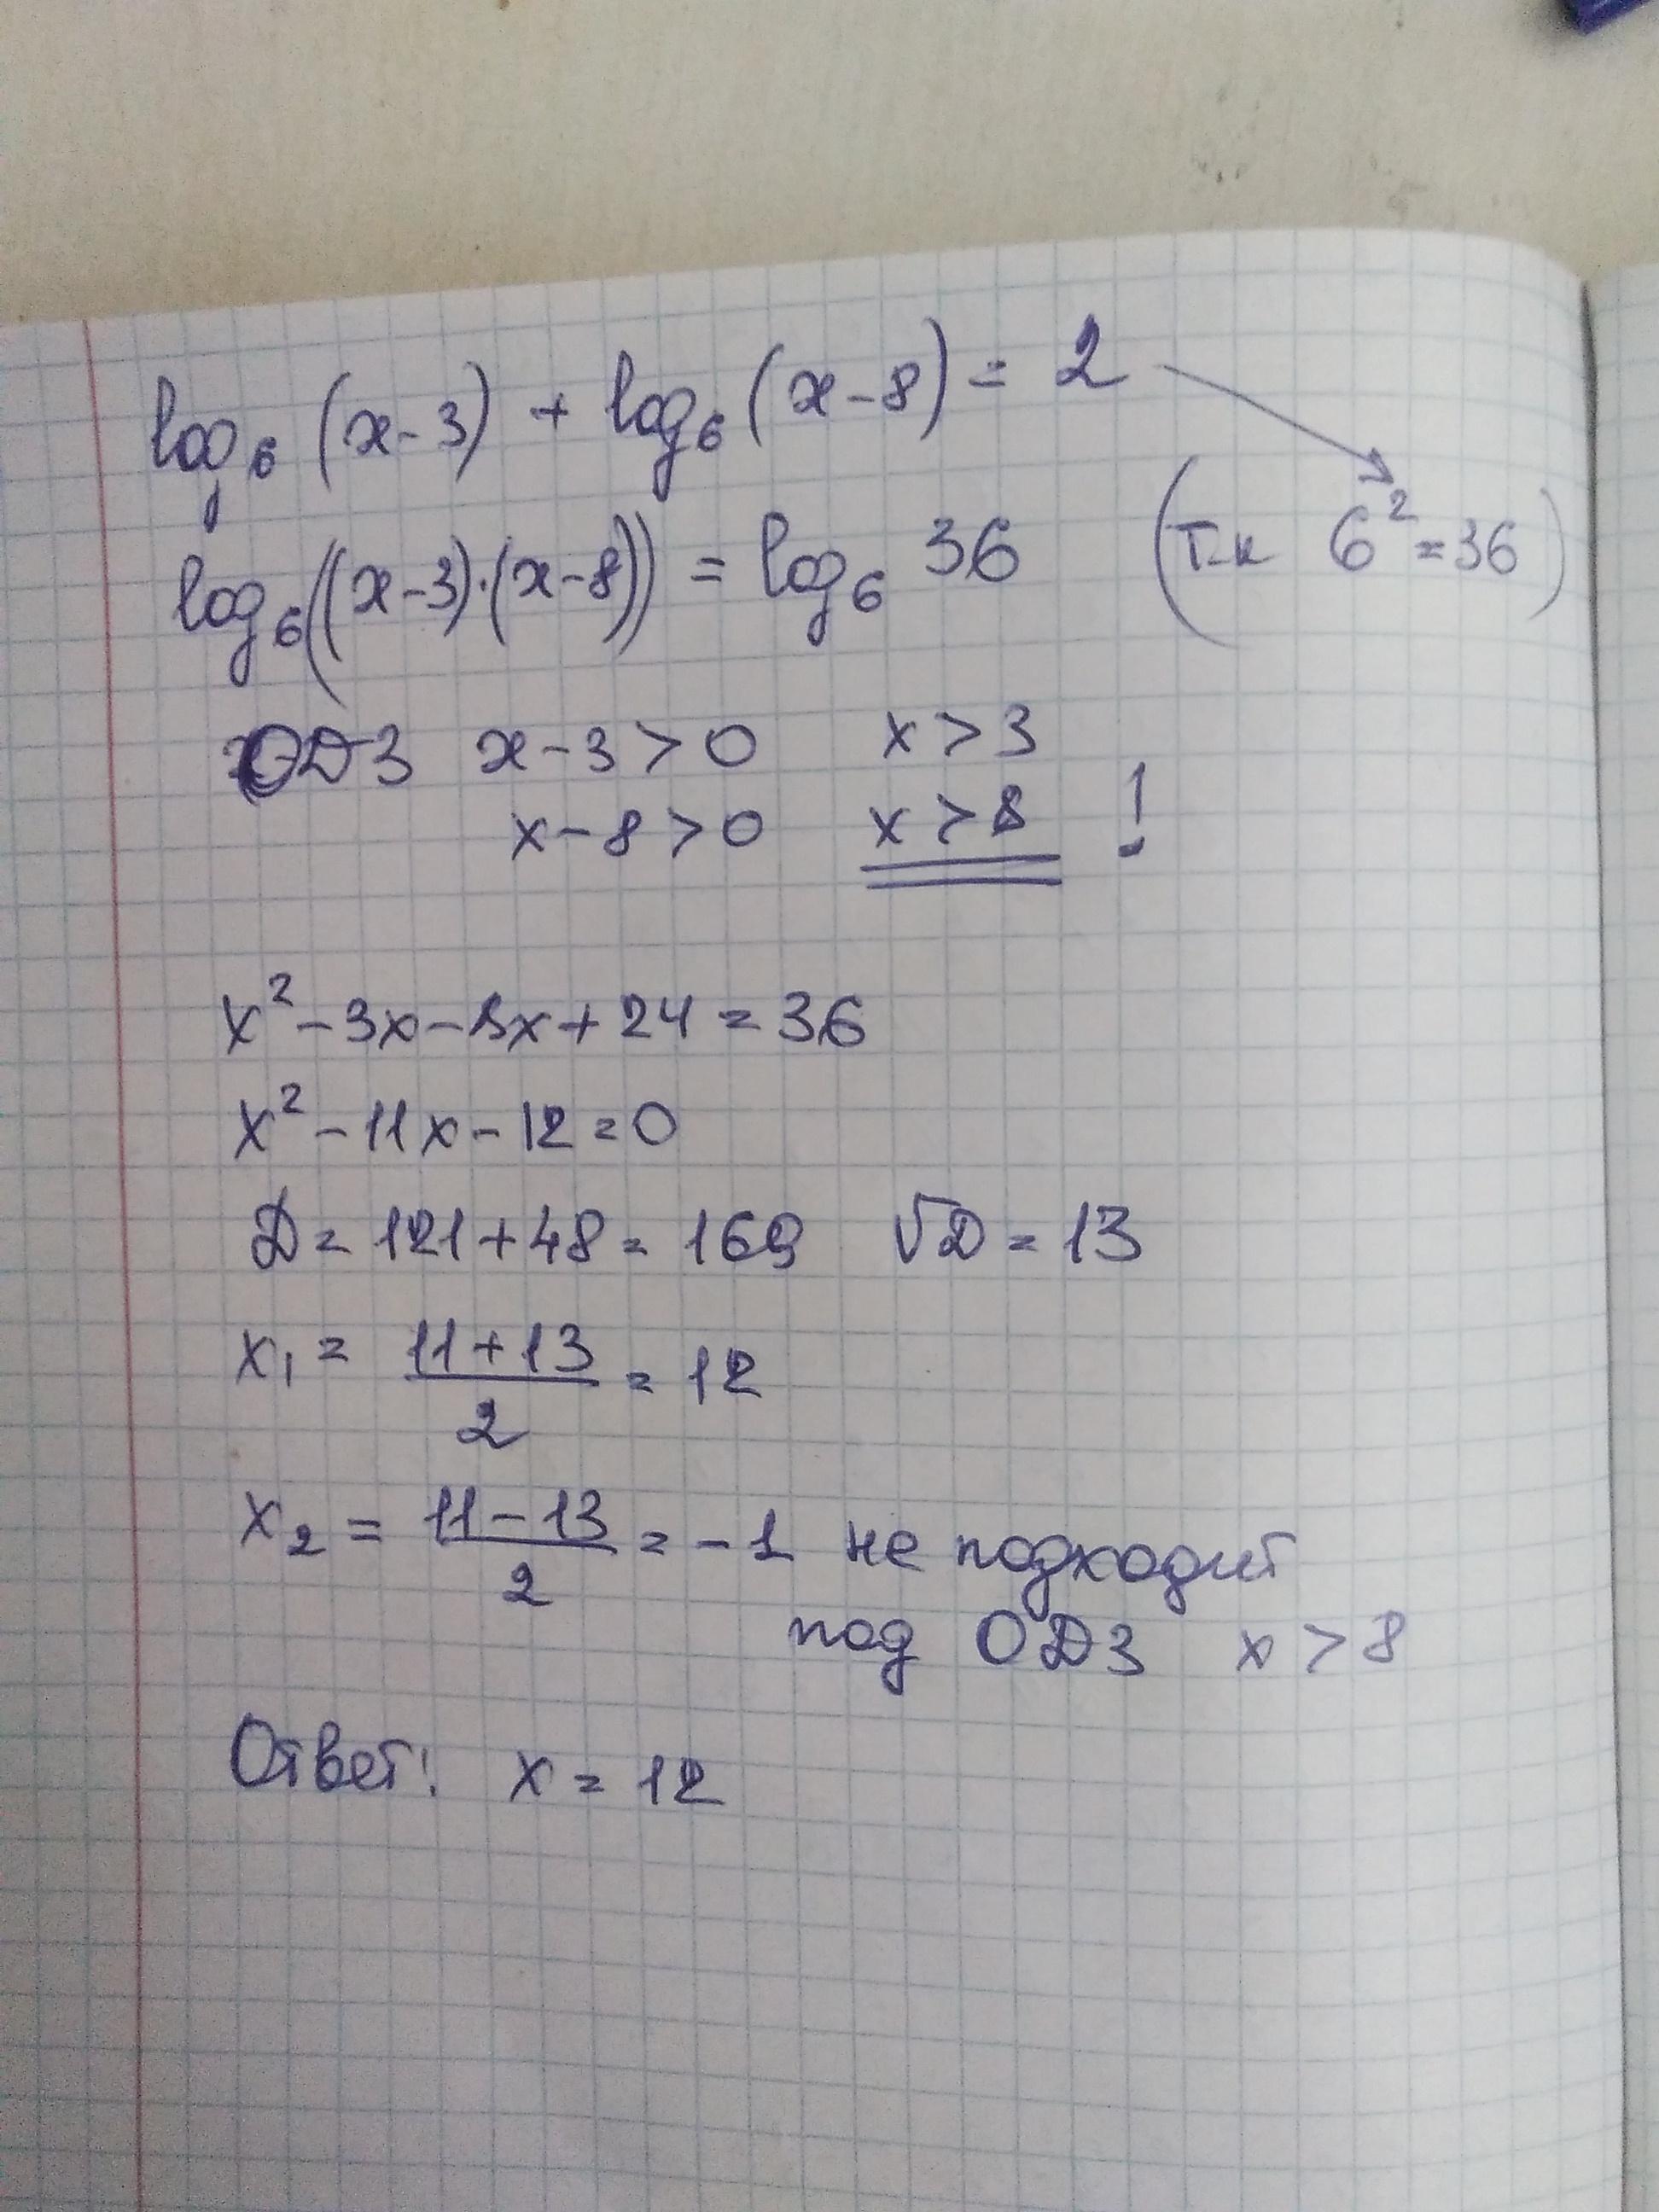 log₆(x-3) + log₆(x-8) = 2
log₆((x-3)·(x-8)) = log₆ 36 (т-к 6² = 36)
ОДЗ x-3>0 x>3
x-8>0 x>8 !
x²-3x-8x+24=36
x²-11x-12=0
Д=121+48=169 √Д=13
x₁ = 11+13/2 = 12
x₂ = 11-13/2 = -1 не подходит
под ОДЗ x>8
Ответ: x=12